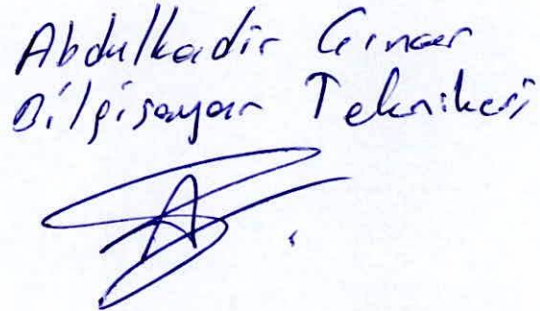 Abdulkadir Çınar
Bilgisayar Teknikeri